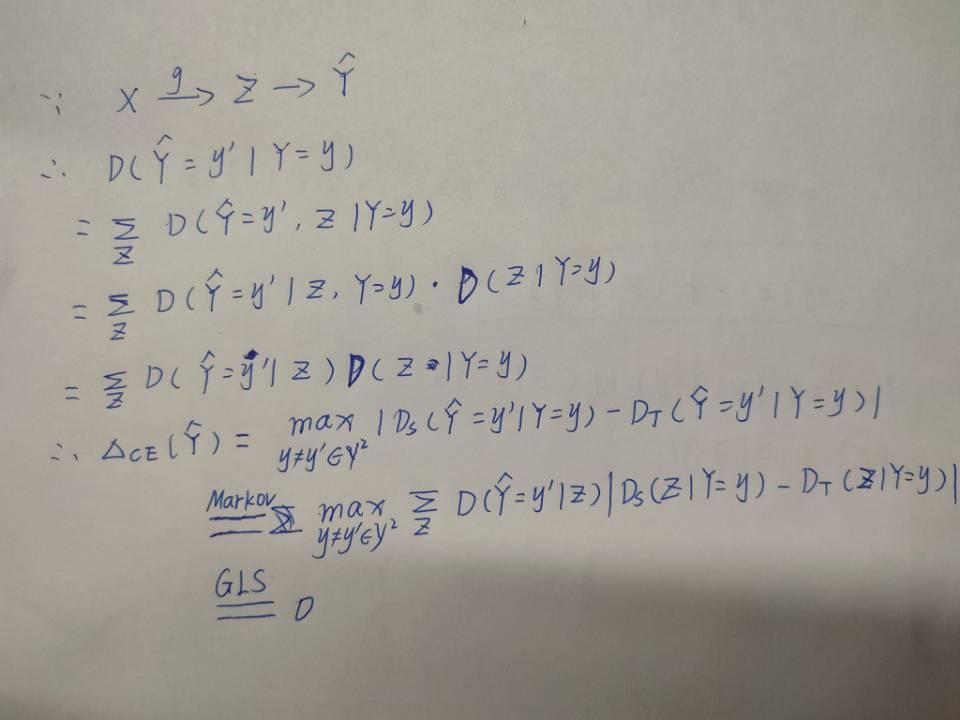 ∵ X →^g Z → Ŷ
∴ D(Ŷ = y' | Y = y)
= Σ_Z D(Ŷ=y', Z | Y=y)
= Σ_Z D(Ŷ=y' | Z, Y=y) · D(Z | Y=y)
= Σ_Z D(Ŷ=y' | Z) D(Z | Y=y)
∴ Δ_CE(Ŷ) = max_{y≠y'∈Y²} | D_S(Ŷ=y' | Y=y) − D_T(Ŷ=y' | Y=y) |
Markov = max_{y≠y'∈Y²} Σ_Z D(Ŷ=y' | Z) | D_S(Z | Y=y) − D_T(Z | Y=y) |
GLS = 0